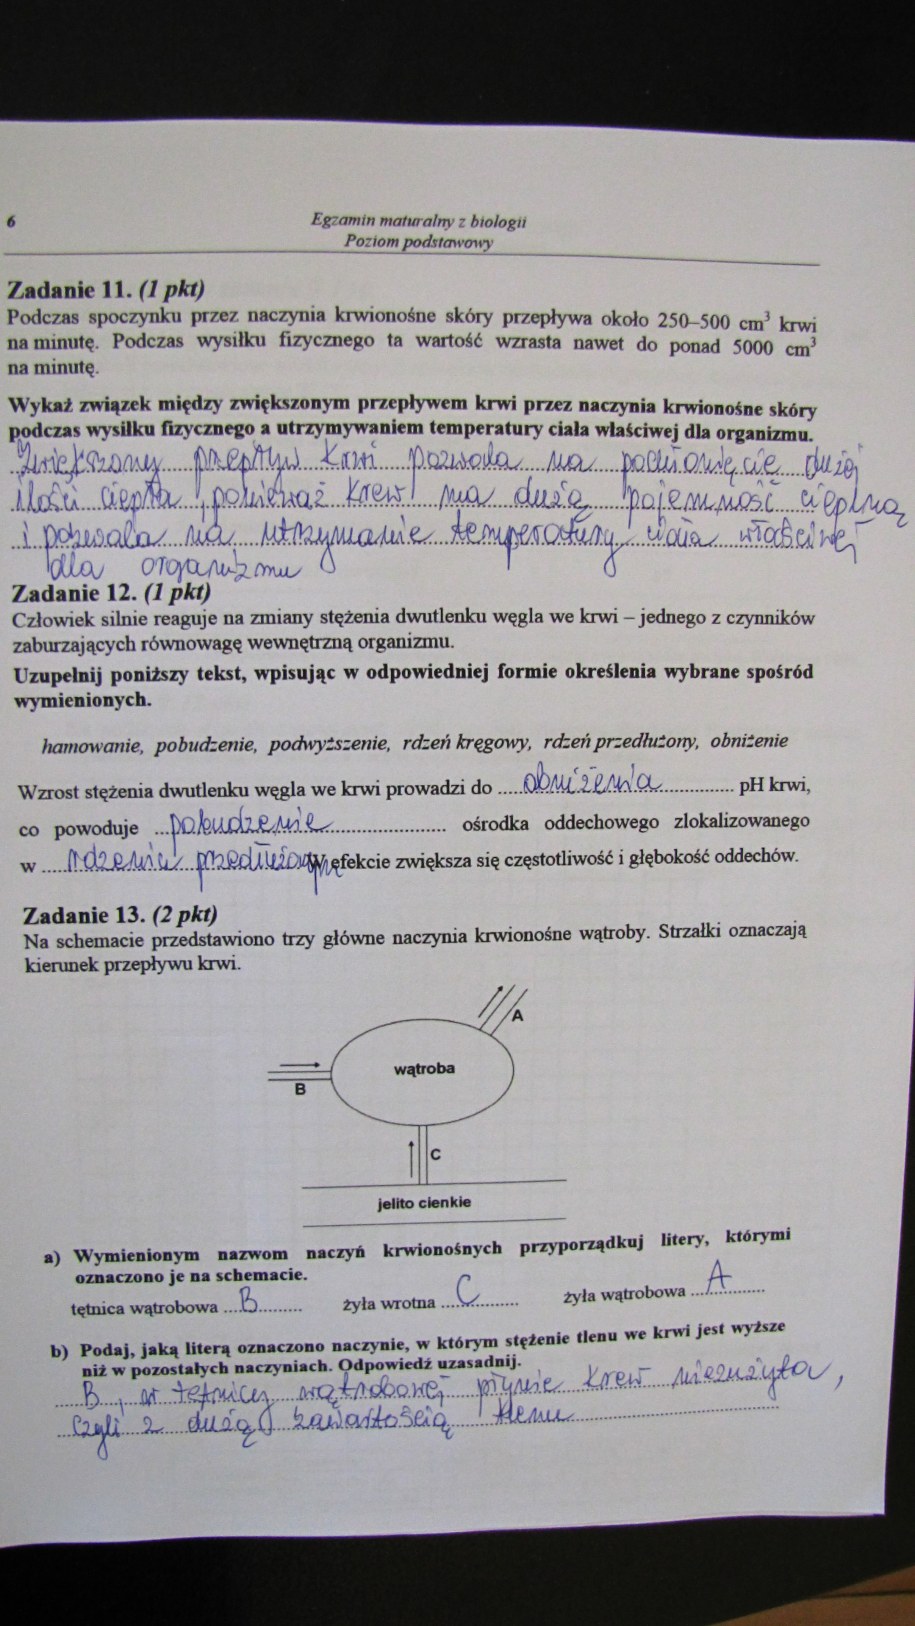 6
Egzamin maturalny z biologii
Poziom podstawowy
Zadanie 11. (1 pkt)
Podczas spoczynku przez naczynia krwionośne skóry przepływa około 250–500 cm³ krwi
na minutę. Podczas wysiłku fizycznego ta wartość wzrasta nawet do ponad 5000 cm³
na minutę.
Wykaż związek między zwiększonym przepływem krwi przez naczynia krwionośne skóry
podczas wysiłku fizycznego a utrzymywaniem temperatury ciała właściwej dla organizmu.
Zwiększony przepływ krwi pozwala na pochłonięcie dużej
ilości ciepła, ponieważ krew ma dużą pojemność cieplną
i pozwala na utrzymanie temperatury ciała właściwej
dla organizmu
Zadanie 12. (1 pkt)
Człowiek silnie reaguje na zmiany stężenia dwutlenku węgla we krwi – jednego z czynników
zaburzających równowagę wewnętrzną organizmu.
Uzupełnij poniższy tekst, wpisując w odpowiedniej formie określenia wybrane spośród
wymienionych.
hamowanie, pobudzenie, podwyższenie, rdzeń kręgowy, rdzeń przedłużony, obniżenie
Wzrost stężenia dwutlenku węgla we krwi prowadzi do obniżenia pH krwi,
co powoduje pobudzenie ośrodka oddechowego zlokalizowanego
w rdzeniu przedłużonym W efekcie zwiększa się częstotliwość i głębokość oddechów.
Zadanie 13. (2 pkt)
Na schemacie przedstawiono trzy główne naczynia krwionośne wątroby. Strzałki oznaczają
kierunek przepływu krwi.
A
wątroba
B
C
jelito cienkie
a) Wymienionym nazwom naczyń krwionośnych przyporządkuj litery, którymi
oznaczono je na schemacie.
tętnica wątrobowa B żyła wrotna C żyła wątrobowa A
b) Podaj, jaką literą oznaczono naczynie, w którym stężenie tlenu we krwi jest wyższe
niż w pozostałych naczyniach. Odpowiedź uzasadnij.
B, w tętnicy wątrobowej płynie krew niezużyta,
czyli z dużą zawartością tlenu